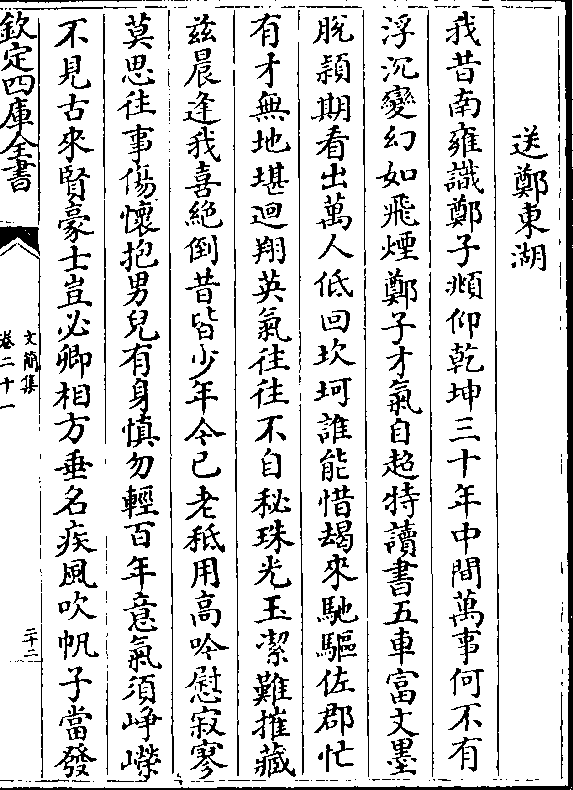 送鄭東湖
我昔南雍識鄭子頫仰乾坤三十年中間萬事何不有
浮沉變幻如飛煙鄭子才氣自超特讀書五車富文墨
脫穎期看出萬人低回坎坷誰能惜朅來馳驅佐郡忙
有才無地堪迴翔英氣徃徃不自秘珠光玉潔難摧藏
兹晨逢我喜絶倒昔皆少年今已老秪用高吟慰寂寥
莫思往事傷懷抱男兒有身慎勿輕百年意氣須崢嶸
不見古來賢豪士豈必卿相方垂名疾風吹帆子當發
欽定四庫全書
文簡集
卷二十一
三十二